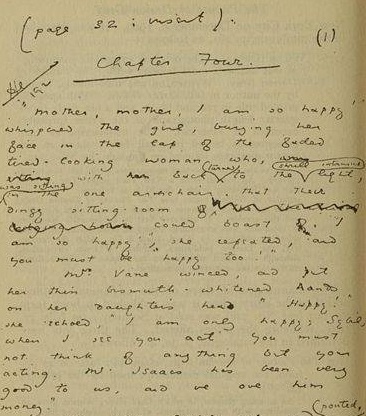 (page 32 : insert).
(1)
Chapter Four.
"Mother, mother, I am so happy!"
whispered the girl, burying her
face in the lap of the faded
tired-looking woman who,
with her back turned to the shrill intrusive light,
was sitting in the one armchair that their
dingy sitting-room
could boast of. "I
am so happy!", she repeated, "and
you must be happy too!"
Mrs Vane winced, and put
her thin bismuth-whitened hands
on her daughter's head "Happy!"
she echoed, "I am only happy, Sybil,
when I see you act. You must
not think of anything but your
acting. Mr Isaacs has been very
good to us, and we owe him
money."
(pouted,